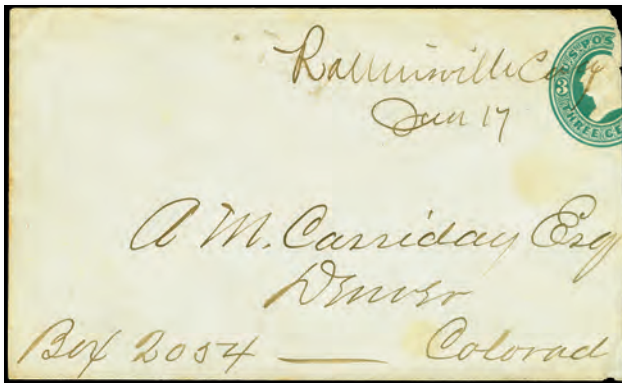 Rollinsville Colo
Jan 17
U.S. POS
THREE CE
A M. Cassiday Esq
Denver
Box 2054 — Colorad